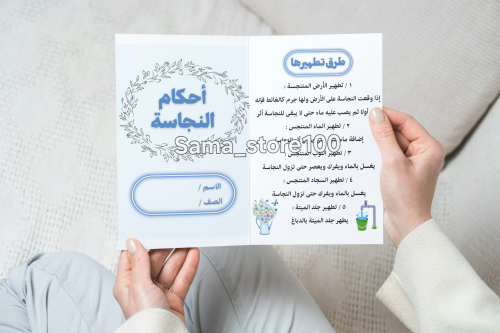 أحكام
النجاسة
الاسم /
الصف /
طرق تطهيرها
١ / تطهير الأرض المتنجسة :
إذا وقعت النجاسة على الأرض ولها جرم كالغائط فإنه
أولا ثم يصب عليه ماء حتى لا يبقى للنجاسة أثر
٢ / تطهير الماء المتنجس :
إضافة
٣ / تطهير الثوب المتنجس :
يغسل بالماء ويفرك ويعصر حتى تزول النجاسة
٤ / تطهير السجاد المتنجس :
يغسل بالماء ويفرك حتى تزول النجاسة
٥ / تطهير جلد الميتة :
يطهر جلد الميتة بالدباغ
Sama_store100